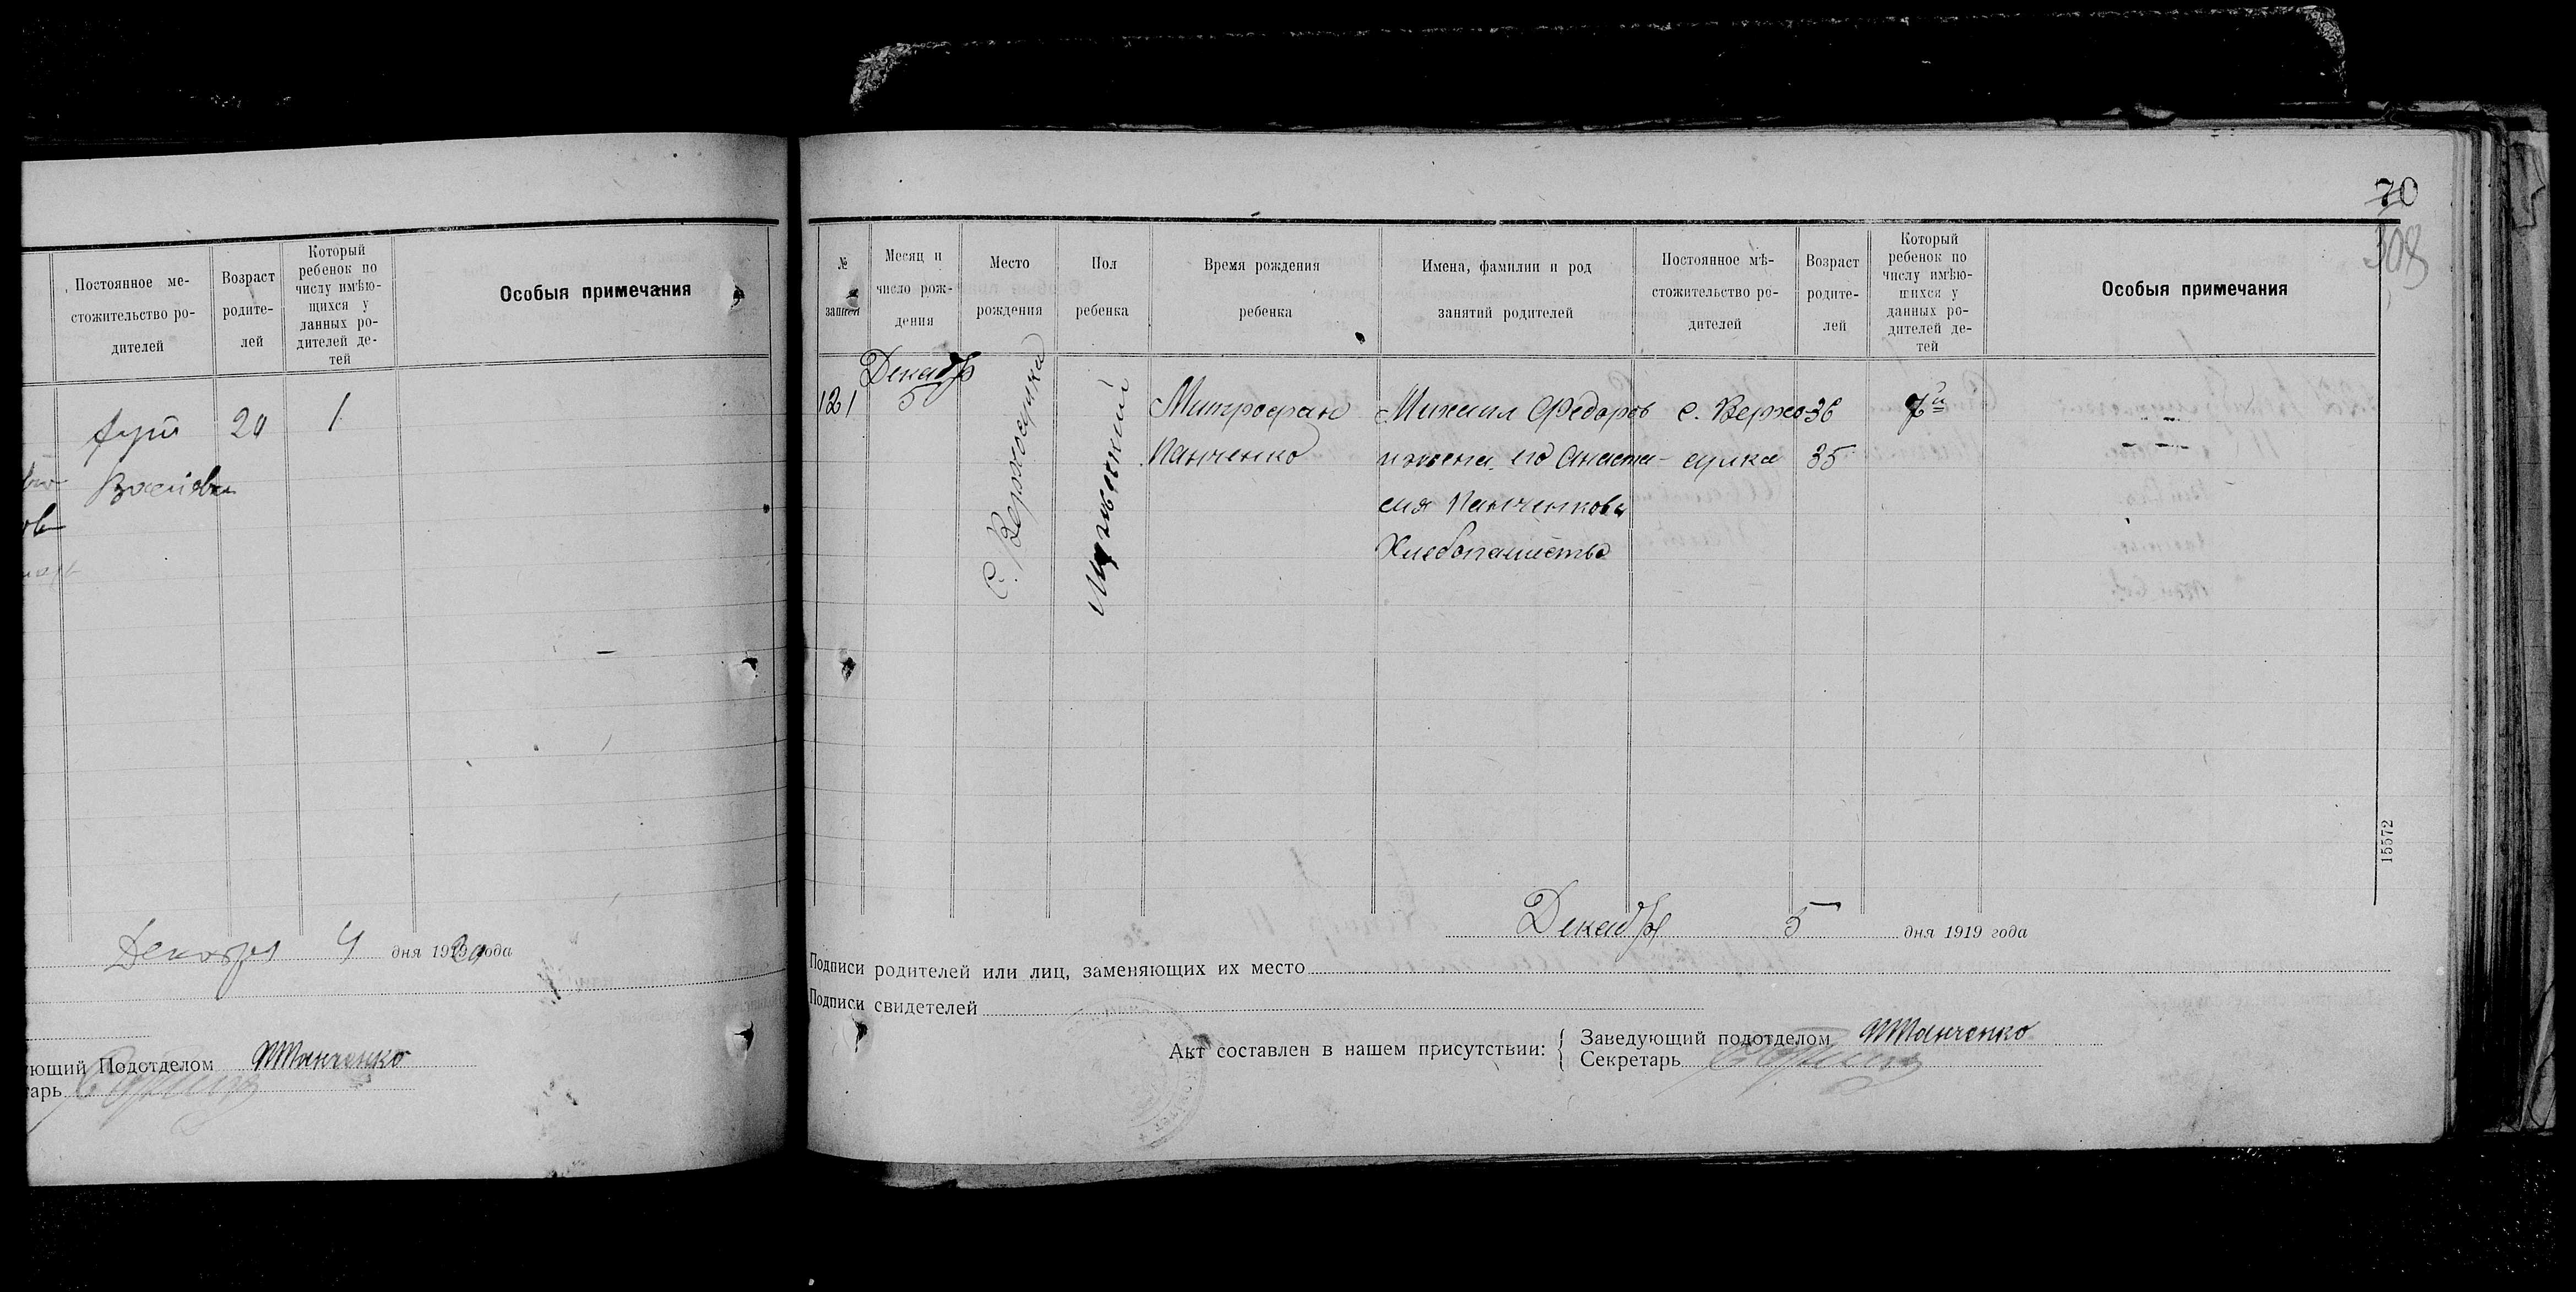 Постоянное ме-
стожительство ро-
дителей
Возраст
родите-
лей
Который
ребенок по
числу имѣю-
щихся у
данных ро-
дителей де-
тей
Особыя примечания
20
1
Декабря 4 дня 1919 года
ующий Подотделом
тарь
70
308
№
записи
Месяц и
число рож-
дения
Место
рождения
Пол
ребенка
Время рождения
ребенка
Имена, фамилии и род
занятий родителей
Постоянное мѣ-
стожительство ро-
дителей
Возраст
родите-
лей
Который
ребенок по
числу имѣю-
щихся у
данных ро-
дителей де-
тей
Особыя примечания
121
Декабр
5
С. Верхосулка
Мужеский
Митрофан
Панченко
Михаил Федоров
и жена его Анаста-
сия Панченкова
Хлебопашество
с. Верхо-
сулка
36
35
7й
15572
Декабря 5 дня 1919 года
Подписи родителей или лиц, заменяющих их место
Подписи свидетелей
Акт составлен в нашем присутствии:
Заведующий подотделом Панченко
Секретарь